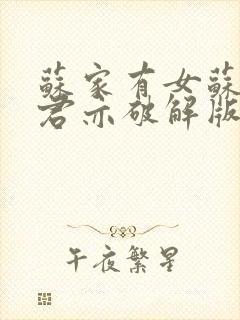 蘇家有女蘇
君亦破解版
午夜繁星